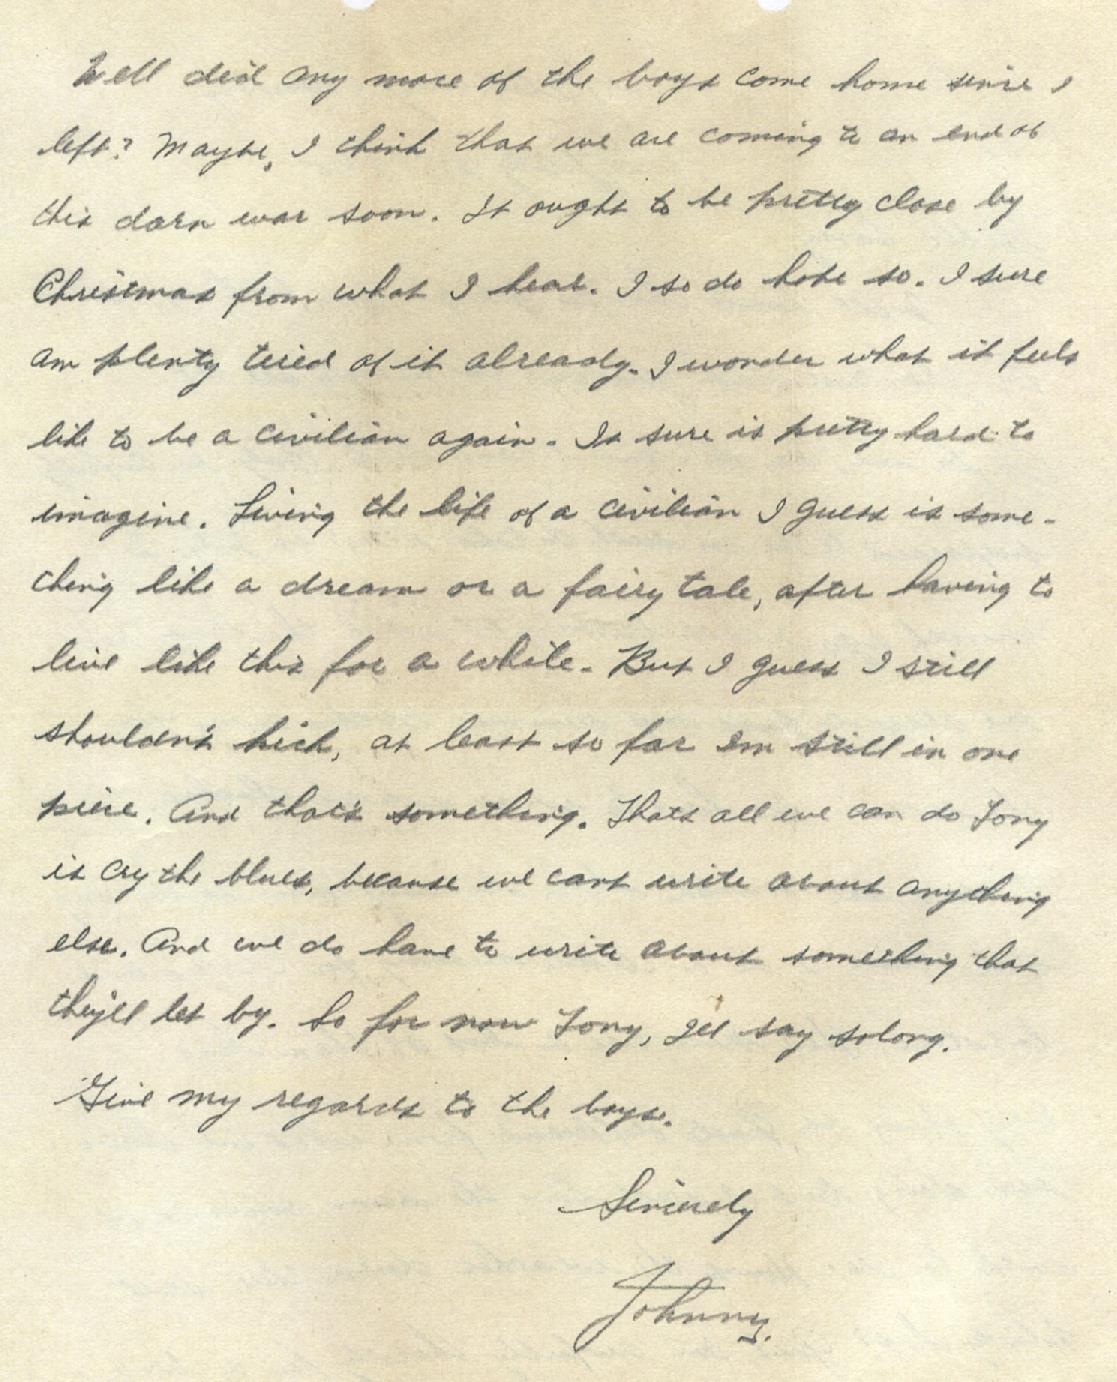 Well did any more of the boys come home since I
left? Maybe, I think that we are coming to an end of
this darn war soon. It ought to be pretty close by
Christmas from what I hear. I so do hope so. I sure
am plenty tired of it already. I wonder what it feels
like to be a civilian again. It sure is pretty hard to
imagine. Living the life of a civilian I guess is some-
thing like a dream or a fairy tale, after having to
live like this for a while. But I guess I still
shouldn't kick, at least so far Im still in one
piece. And that's something. Thats all we can do Tony
is cry the blues, because we cant write about anything
else. And we do have to write about something that
they'll let by. So for now Tony, I'll say solong.
Give my regards to the boys.
Sincerely
Johnny.